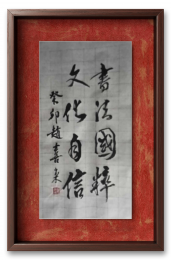 書法國粹
文化自信
癸卯趙喜來